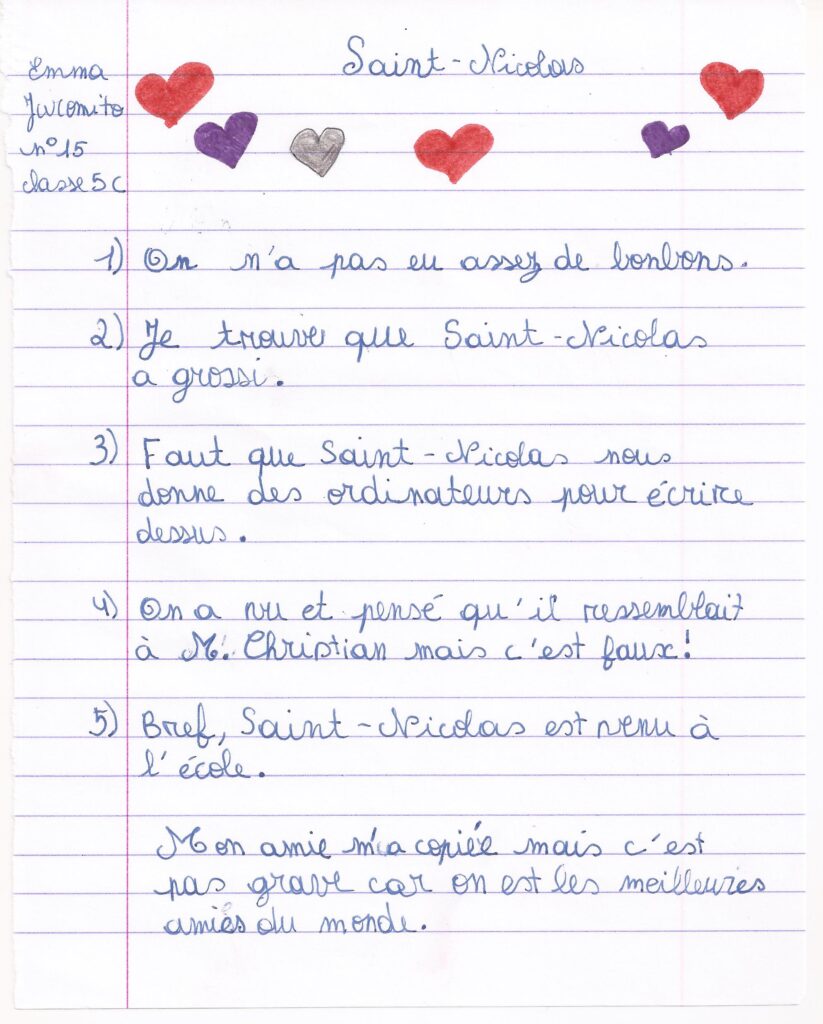 Saint-Nicolas
Emma
n°15
classe 5C
1) On n'a pas eu assez de bonbons.
2) Je trouve que Saint-Nicolas
a grossi.
3) Faut que Saint-Nicolas nous
donne des ordinateurs pour écrire
dessus.
4) On a vu et pensé qu'il ressemblait
à M. Christian mais c'est faux!
5) Bref, Saint-Nicolas est venu à
l'école.
Mon amie m'a copiée mais c'est
pas grave car on est les meilleures
amies du monde.